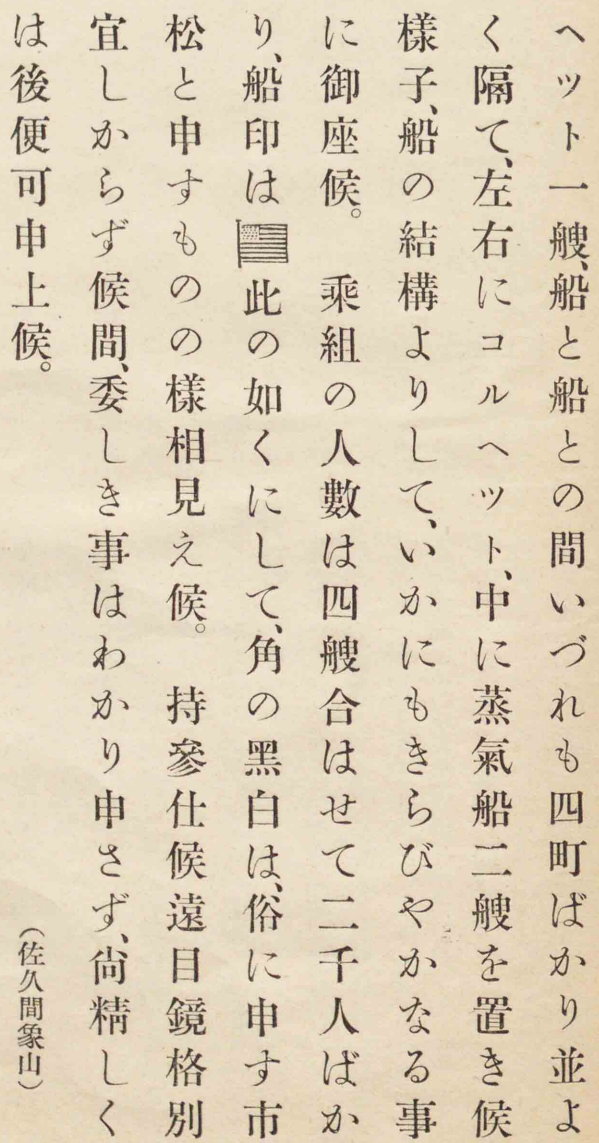 ヘット一艘、船と船との間いづれも四町ばかり並よ
く隔て、左右にコルヘット、中に蒸氣船二艘を置き候
樣子、船の結構よりして、いかにもきらびやかなる事
に御座候。 乘組の人數は四艘合はせて二千人ばか
り、船印は 此の如くにして、角の黑白は、俗に申す市
松と申すものの樣相見え候。 持參仕候遠目鏡格別
宜しからず候間、委しき事はわかり申さず、尙精しく
は後便可申上候。
(佐久間象山)